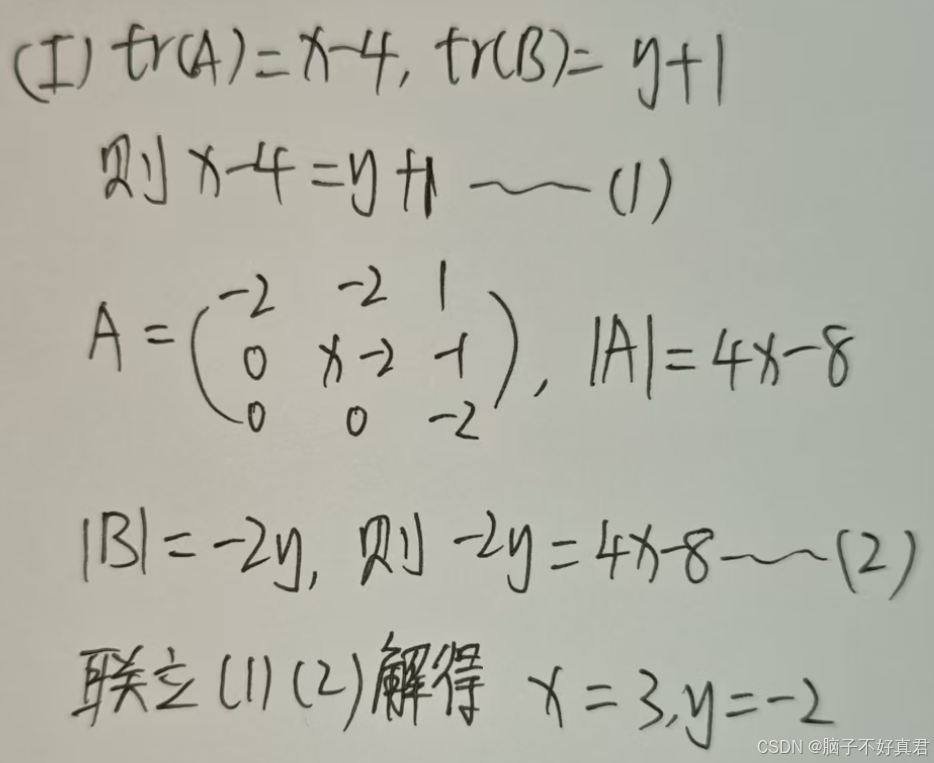 (I) tr(A)=x-4, tr(B)= y+1
则 x-4=y+1 ——(1)
-2 -2 1
A = ( 0 x-2 -1 ), |A|=4x-8
0 0 -2
|B|=-2y, 则 -2y=4x-8——(2)
联立(1)(2)解得 x=3,y=-2
CSDN @脑子不好真君